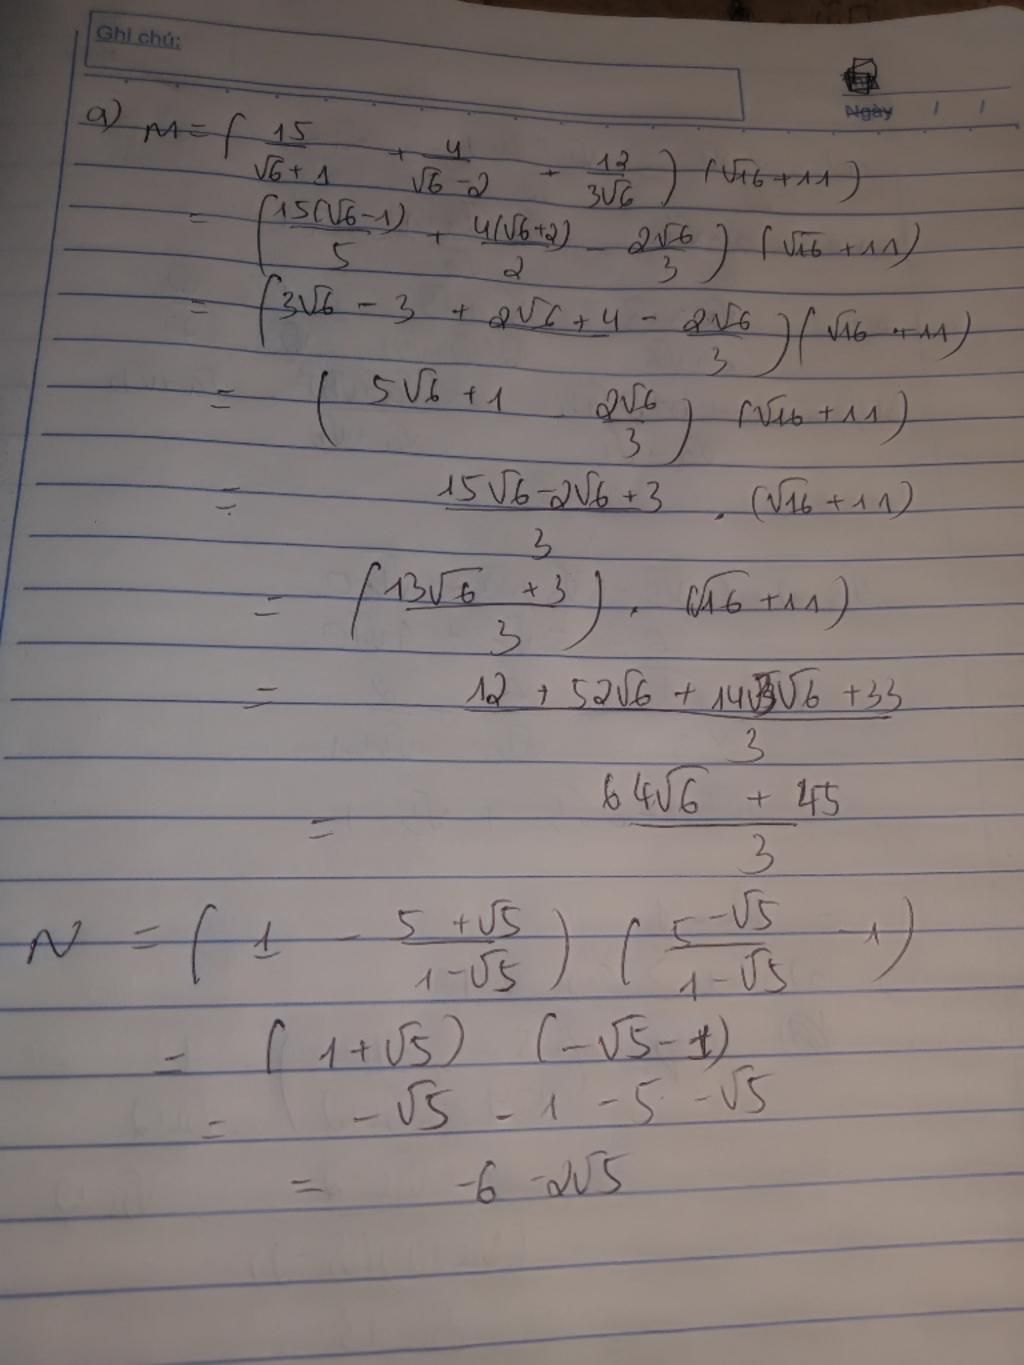 Ghi chú:
Ngày / /
a) M = ( 15/(√6+1) + 4/(√6-2) + 12/(3√6) ) (√16+11)
= ( 15(√6-1)/5 + 4(√6+2)/2 - 2√6/3 ) (√16+11)
= ( 3√6 - 3 + 2√6 + 4 - 2√6/3 ) (√16 + 11)
= ( 5√6 + 1 - 2√6/3 ) (√16+11)
= (15√6 - 2√6 + 3)/3 . (√16+11)
= ( (13√6 + 3)/3 ) . (√16+11)
= (12 + 52√6 + 143√6 + 33)/3
= (64√6 + 45)/3
N = ( 1 - (5+√5)/(1-√5) ) ( (5-√5)/(1-√5) - 1 )
= ( 1+√5 ) (-√5-1)
= -√5 - 1 - 5 - √5
= -6 -2√5